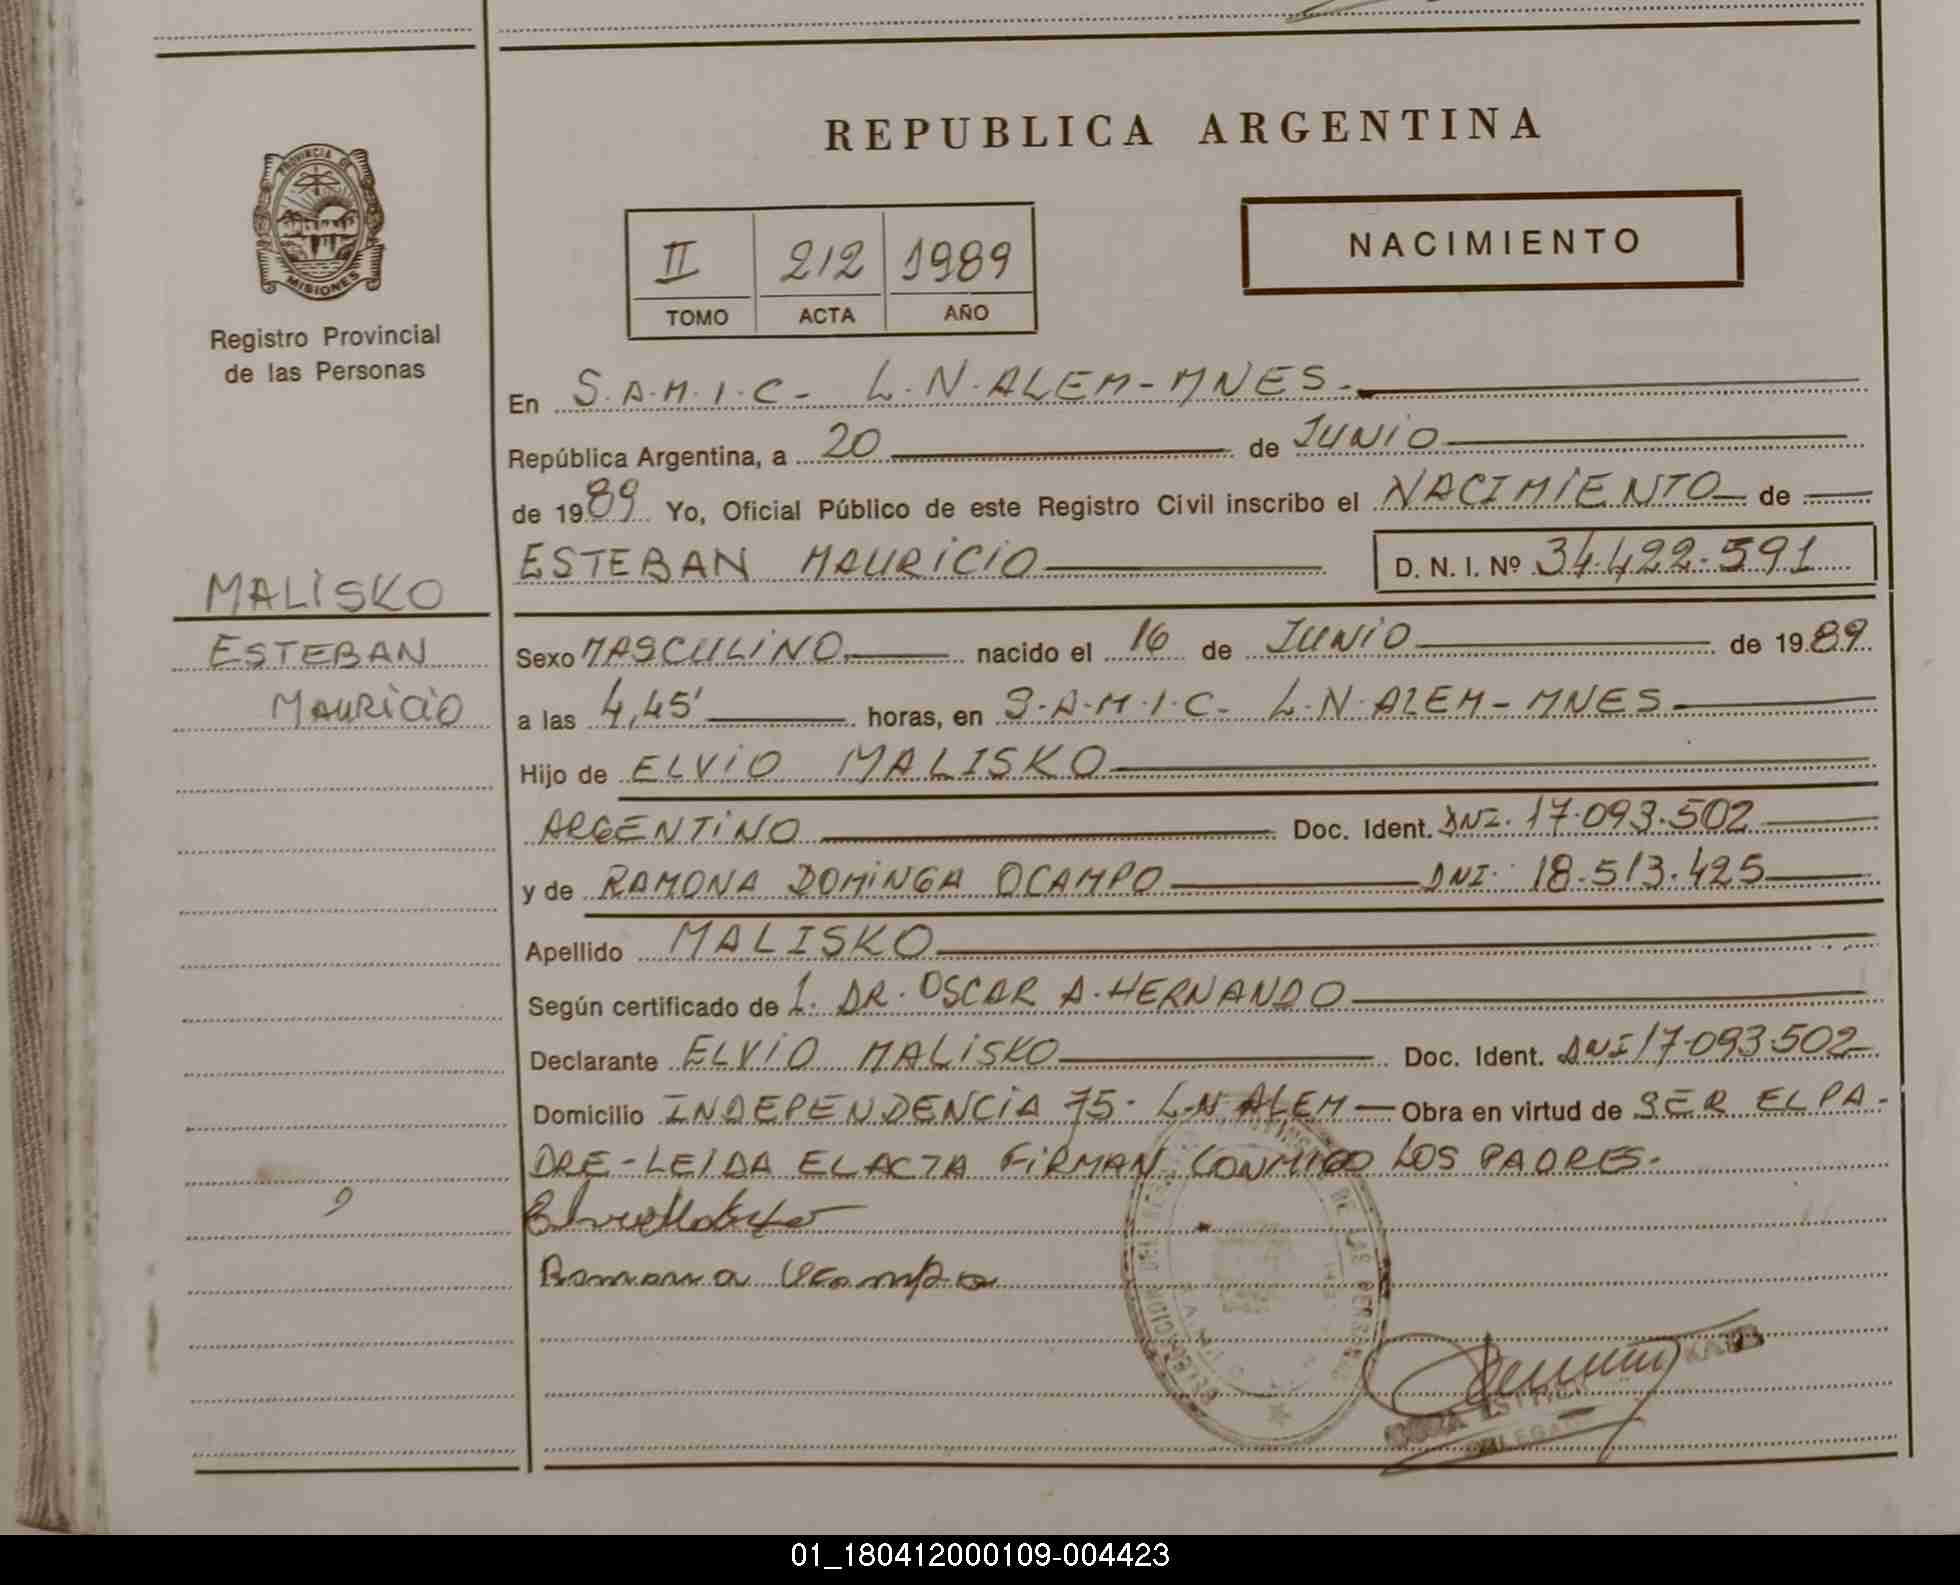 REPUBLICA ARGENTINA
PROVINCIA DE
MISIONES
Registro Provincial
de las Personas
II 212 1989
TOMO ACTA AÑO
NACIMIENTO
En S.A.M.I.C- L.N.ALEM-MNES.-
República Argentina, a 20 de JUNIO
de 1989 Yo, Oficial Público de este Registro Civil inscribo el NACIMIENTO de
ESTEBAN MAURICIO D. N. I. Nº 34.422.591
MALISKO
ESTEBAN
MAURICIO
Sexo MASCULINO nacido el 16 de JUNIO de 1989.
a las 4,45' horas, en S.A.M.I.C- L.N.ALEM-MNES
Hijo de ELVIO MALISKO
ARGENTINO Doc. Ident. DNI. 17.093.502
y de RAMONA DOMINGA OCAMPO DNI. 18.513.425
Apellido MALISKO
Según certificado de DR. OSCAR A. HERNANDO
Declarante ELVIO MALISKO Doc. Ident. DNI 17.093.502
Domicilio INDEPENDENCIA 75- L.N ALEM Obra en virtud de SER EL PA-
DRE-LEIDA EL ACTA FIRMAN CONMIGO LOS PADRES.
Ramona Ocampo
DE LAS PERSONAS
01_180412000109-004423